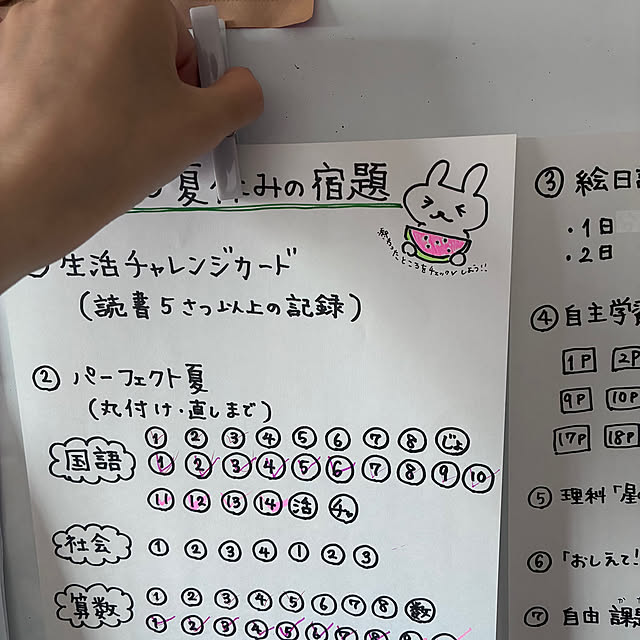 夏休みの宿題
終わったところをチェックしよう!!
生活チャレンジカード
(読書5さつ以上の記録)
② パーフェクト夏
(丸付け・直しまで)
国語
① ② ③ ④ ⑤ ⑥ ⑦ ⑧ じょ
① ② ③ ④ ⑤ ⑥ ⑦ ⑧ ⑨ ⑩
⑪ ⑫ ⑬ ⑭ 活 チャ
社会
① ② ③ ④ ① ② ③
算数
① ② ③ ④ ⑤ ⑥ ⑦ ⑧ 数
① ② ③ ④ ⑤ ⑥ ⑦ ⑧
③ 絵日
・1日
・2日
④ 自主学
1P 2P
9P 10P
17P 18P
⑤ 理科「星
⑥ 「おしえて!
⑦ 自由 課題